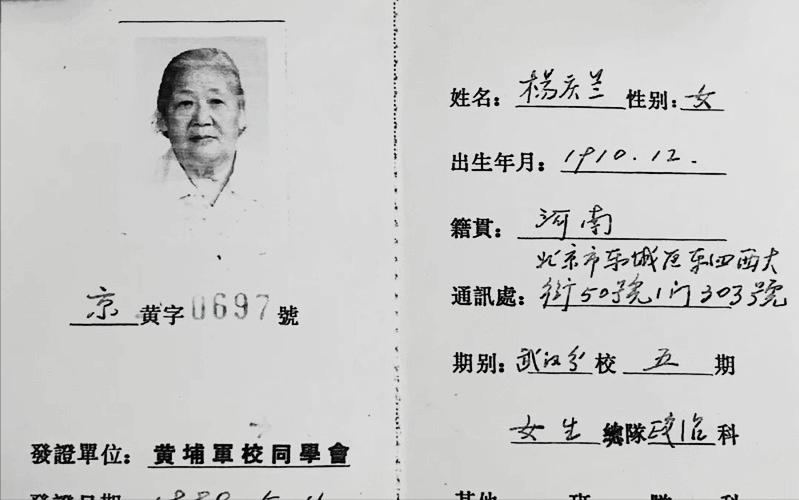 京 黄字 0697 號
發證單位: 黄埔軍校同學會
發證日期
姓名: 楊庆兰 性别: 女
出生年月: 1910.12.
籍貫: 河南
北京市东城区东四西大
通訊處: 街50號1门303號
期别: 武汉分校 五 期
女生 總隊 政治 科
其他 班 隊 科